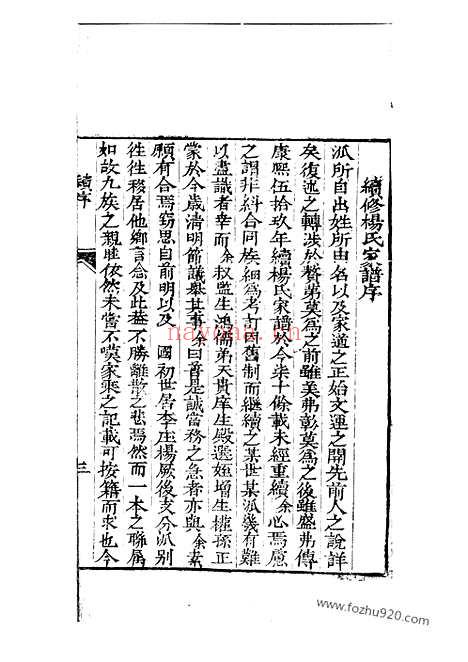 續修楊氏家譜序
派所自出姓所由名以及家道之正始文運之開先前人之說詳
矣復述之轉涉於贅第莫爲之前雖美弗彰莫爲之後雖盛弗傳
康熙伍拾玖年續楊氏家譜矣今柒十餘載未經重續余心焉慮
之謂非糾合同族細爲考訂踵舊制而繼續之某世某派幾有難
以盡識者幸而余叔監生鴻儒弟天貴庠生殿選姪增生權孫正
蒙於今歲清明節議舉其事余曰善是誠當務之急者亦與余素
願有合焉竊思自前明以及 國初世居李庄楊厥後支分派別
徃徃移居他鄉言念及此葢不勝離散之悲焉然而一本之聯属
如故九族之親睦依然未嘗不嘆家乘之記載可按籍而求也今
續序
三
nayona.cn
www.fozhu920.com